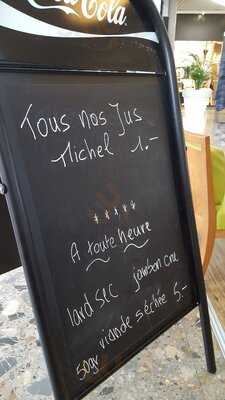 Coca-Cola
Tous nos Jus
Michel 1.-
*****
A toute heure
lard sec jambon cru
50gr viande séchée 5.-